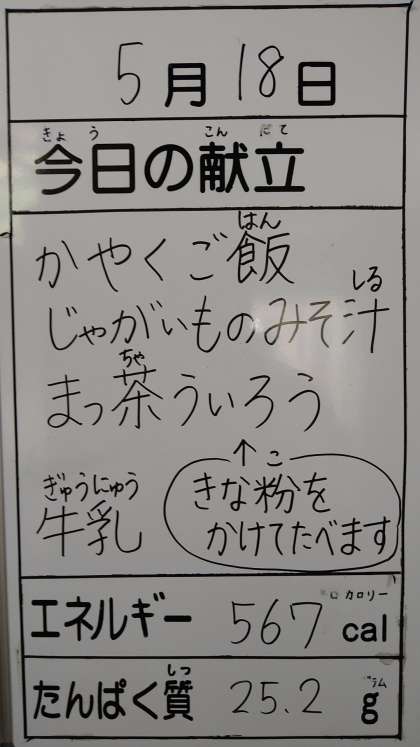 5月18日
きょう こんだて
今日の献立
はん
かやくご飯
しる
じゃがいものみそ汁
ちゃ
まっ茶ういろう
↑
ぎゅうにゅう
牛乳
こ
きな粉を
かけてたべます
カロリー
エネルギー 567 cal
しつ グラム
たんぱく質 25.2 g